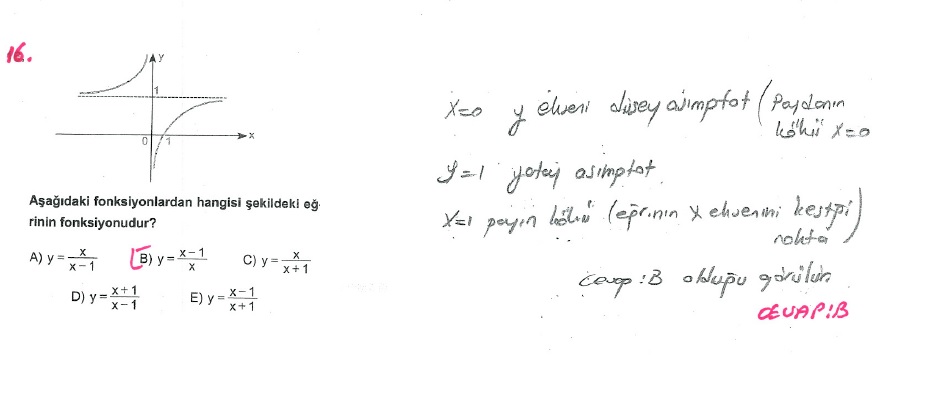 16.
y
1
0
1
x
Aşağıdaki fonksiyonlardan hangisi şekildeki eğ-
rinin fonksiyonudur?
A) y = x / x − 1
B) y = x − 1 / x
C) y = x / x + 1
D) y = x + 1 / x − 1
E) y = x − 1 / x + 1
X=0 y ekseni düşey asimptot (Paydanın
kökü x=0
y=1 yatay asimptot.
X=1 payın kökü (eğrinin x eksenini kestiği
nokta)
Cevap : B olduğu görülür.
CEVAP:B